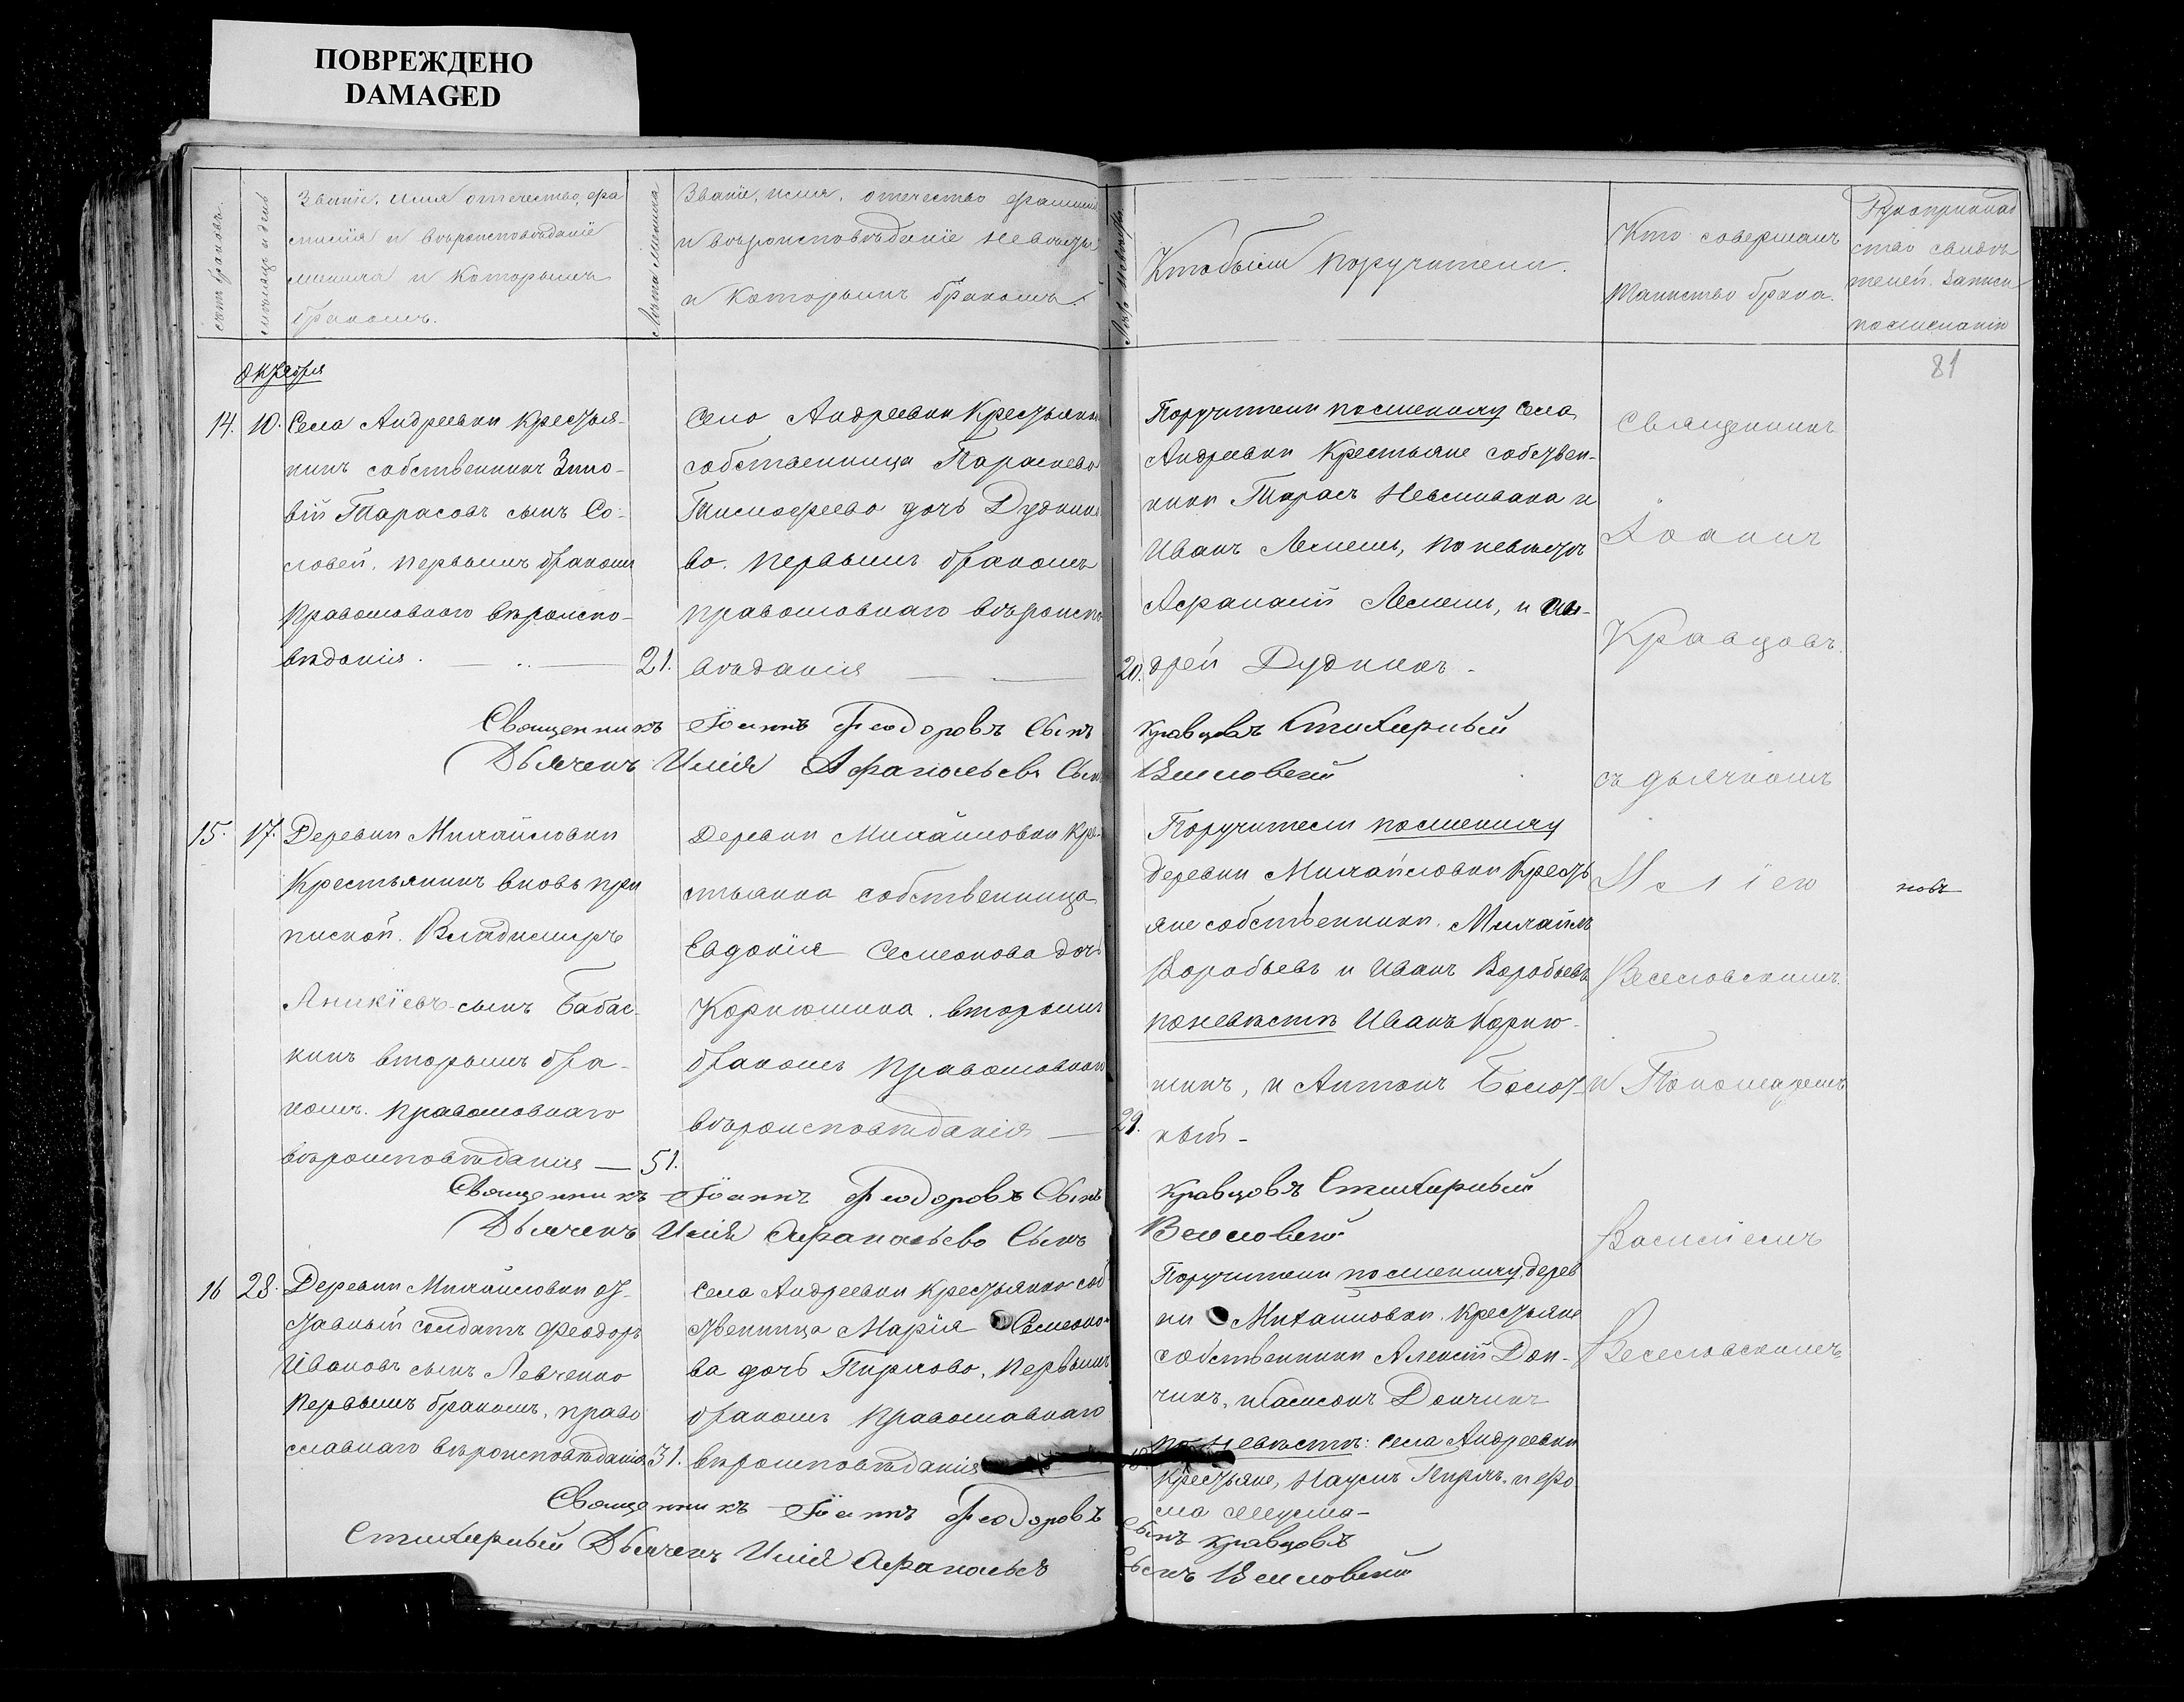 ПОВРЕЖДЕНО
DAMAGED
счетъ браковъ.
мѣсяцъ и день
Званіе, имя отечество, фа
милія и вѣроисповѣданіе
жениха и которымъ
бракомъ.
Лѣта жениха
Званіе, имя, отечество фамилія
и вѣроисповѣданіе невѣсты
и которымъ бракомъ.
Лѣта невѣсты.
Кто были поручители.
Кто совершалъ
таинство брака.
Рукоприклад
ство свидѣ
телей записи
по желанію
81
Октября
14. 10. Села Андреевки крестья-
нинъ собственникъ Зино-
вій Тарасовъ сынъ Со-
ловей, первымъ бракомъ
православнаго вѣроиспо-
вѣданія. 21.
Село Андреевки крестьянка
собственница Параскева
Тимофеева дочь Дудкина
ва. первымъ бракомъ
православнаго вѣроиспо
вѣданія 20.
Поручители по жениху села
Андреевки крестьяне собствен-
ники Тарасъ и
Иванъ Лемешъ, по невѣстѣ
Афанасій Лемешъ, и Ан-
дрей Дудникъ.
Священникъ
Іоаннъ
Кравцовъ
съ дьячкомъ
Иліею
Веселовскимъ
и Пономаремъ
Василіемъ
Веселовскимъ
Священникъ Іоаннъ Феодоровъ Сынъ Кравцовъ
Дьячекъ Илія Афанасьевъ Сынъ
15. 17. Деревни Михайловки
крестьянинъ вновь при
писной. Владимиръ
Аникіевъ сынъ Бабас-
кинъ вторымъ бра-
комъ. православнаго
вѣроисповѣданія — 51.
Деревни Михайловки кре-
стьянка собственница
Евдокія Семеонова дочь
Корнюшина. вторымъ
бракомъ православнаго
вѣроисповѣданія — 29.
Поручители по жениху
деревни Михайловки кресть
яне собственники. Михаилъ
Воробьевъ и Иванъ Воробьевъ
по невѣстѣ Иванъ Корню-
шинъ, и Антонъ Болот-
ный -
Священникъ Іоаннъ Феодоровъ Сынъ Кравцовъ
Дьячекъ Илія Афанасьевъ Сынъ
16 28. Деревни Михайловки от-
ставный солдатъ Феодоръ
Ивановъ сынъ Левченко
первымъ бракомъ, право
славнаго вѣроисповѣданія 31.
Села Андреевки крестьянка соб
ственница Марія Семеоно-
ва дочь Пирлова, первымъ
бракомъ православнаго
вѣроисповѣданія
Поручители по жениху, дерев
ни Михайловки. крестьяне
собственники Алексій Дон-
чикъ, и Самсонъ Дончикъ
по невѣстѣ: села Андреевки
крестьяне, Наумъ и Фо
ма
Священникъ Іоаннъ Феодоровъ
Сынъ Кравцовъ
Дьячекъ Илія Афанасьевъ
Сынъ